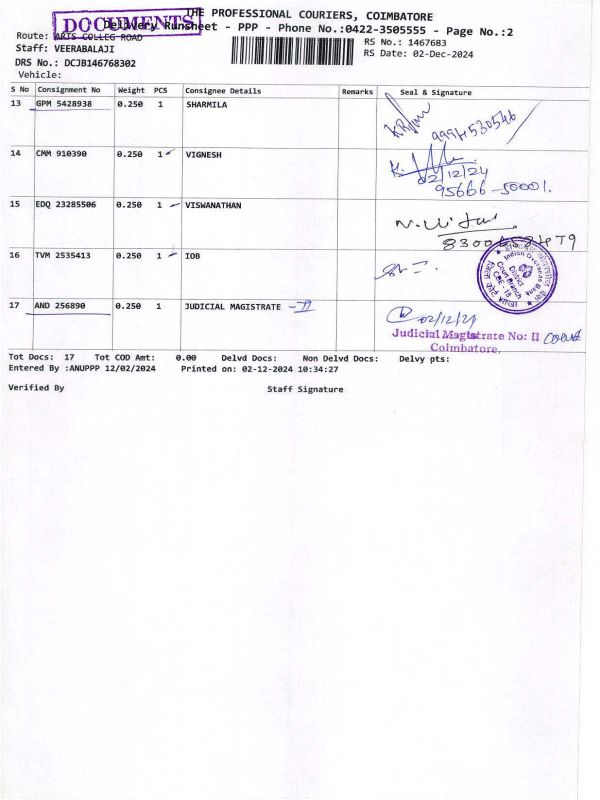 THE PROFESSIONAL COURIERS, COIMBATORE
DOCUMENTS
Delivery Runsheet - PPP - Phone No.:0422-3505555 - Page No.:2
Route: ARTS COLLEG ROAD
RS No.: 1467683
Staff: VEERABALAJI
RS Date: 02-Dec-2024
DRS No.: DCJB146768302
Vehicle:
S No Consignment No Weight PCS Consignee Details Remarks Seal & Signature
13 GPM 5428938 0.250 1 SHARMILA
14 CMM 910390 0.250 1 VIGNESH
02/12/24
95666-50001.
15 EDQ 23285506 0.250 1 VISWANATHAN
16 TVM 2535413 0.250 1 IOB
Indian Overseas Bank
17 AND 256890 0.250 1 JUDICIAL MAGISTRATE -II
02/12/24
Judicial Magistrate No: II
Coimbatore.
Tot Docs: 17 Tot COD Amt: 0.00 Delvd Docs: Non Delvd Docs: Delvy pts:
Entered By :ANUPPP 12/02/2024 Printed on: 02-12-2024 10:34:27
Verified By Staff Signature